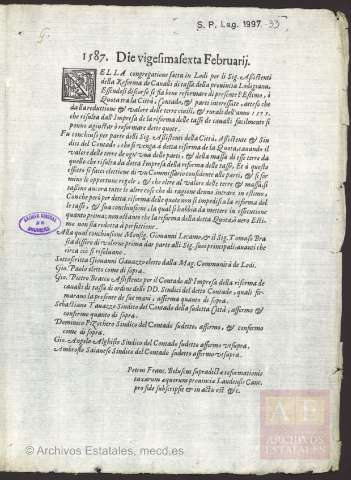 S. P. Lag. 1997 - 33
1587. Die vigesimasexta Februarij.
NELLA congregatione fatta in Lodi per li Sig. Assistenti
della Reforma de Caualli di tasse della prouincia Lodegiana.
Essendosi discorso si sia bene reformare di presente l'Estimo, ò
Quota tra la Città, Contado, & parti interessate, atteso che
dalla redditione & valore delle terre ciuili, & rurali dell'anno 1575.
che risulta dall'Impresa de la reforma delle tasse de caualli facilmente si
ponno agiustar & reformare dette quote.
Fu conchiuso per parte delli Sig. Assistenti della Città, Assistente & Sin
dici del Contado, che si venga à detta reforma de la Quota, attando il
valore delle terre de ogn'vna delle parti, & della massa di esse terre da
quello che risulta da detta Impresa della reforma delle tasse. Et à questo
effetto si facci elettione di vn Commissario confidente alle parti, & si for
mino le opportune regole, & che oltre al valore delle terre & massa si
tassino ancora tutte le altre cose che di ragione deono intrare in estimo.
Con che però per detta reforma delle quote non si impedisca la reforma del
le tasse, & sua conclusione, la qual si habbia da mettere in essecutione
quanto prima; non ostante che la reforma della detta Quota, ò vero Esti-
mo non sia redotta à perfettione.
Alla qual conchiusione Monsig. Giouanni Locamo, & il Sig. Tomaso Bra
sia dissero di volerne prima dar parte alli Sig. suoi principali auanti che
circa ciò si risoluano.
Sottoscritta Giouanni Gauazzo eletto dalla Mag. Communità de Lodi.
Gio. Paolo eletto come di sopra.
Gio. Pietro Bracco Assistente per il Contado all'Impresa della reforma de
caualli di tassa di ordine delli DD. Sindici del detto Contado, quali fir-
marano la presente de sue mani, affirma quanto di sopra.
Sebastiano Tauazzo Sindico del Contado della sudetta Città, affirmo &
confirmo quanto di sopra.
Dominico Pozzobero Sindico del Contado sudetto, affirmo, & confirmo
come di sopra.
Gio. Angelo Alghisio Sindico del Contado sudetto affirmo vt supra.
Ambrosio Saianese Sindico del Contado sudetto affirmo vt supra.
Petrus Franc. Bolusens supradictæ reformationis
taxarum equorum prouinciæ Laudensis Canc.
pro fide subscripsit & in actu est &c.
ARCHIVO GENERAL
DE
SIMANCAS
ARCHIVOS
ESTATALES
© Archivos Estatales, mecd.es